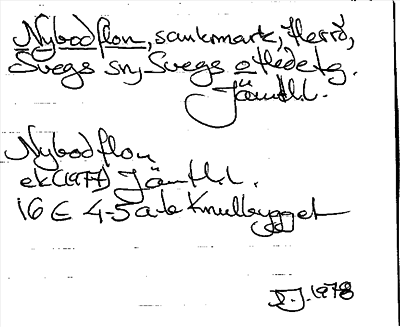 Nybodflon, sankmark, Herrö,
Svegs sn, Svegs o Hede tg.
Jämtl.l.
Nybodflon
ek(1977) Jämtl.l.
16 E 4-5 a-b Knulbygget
1978